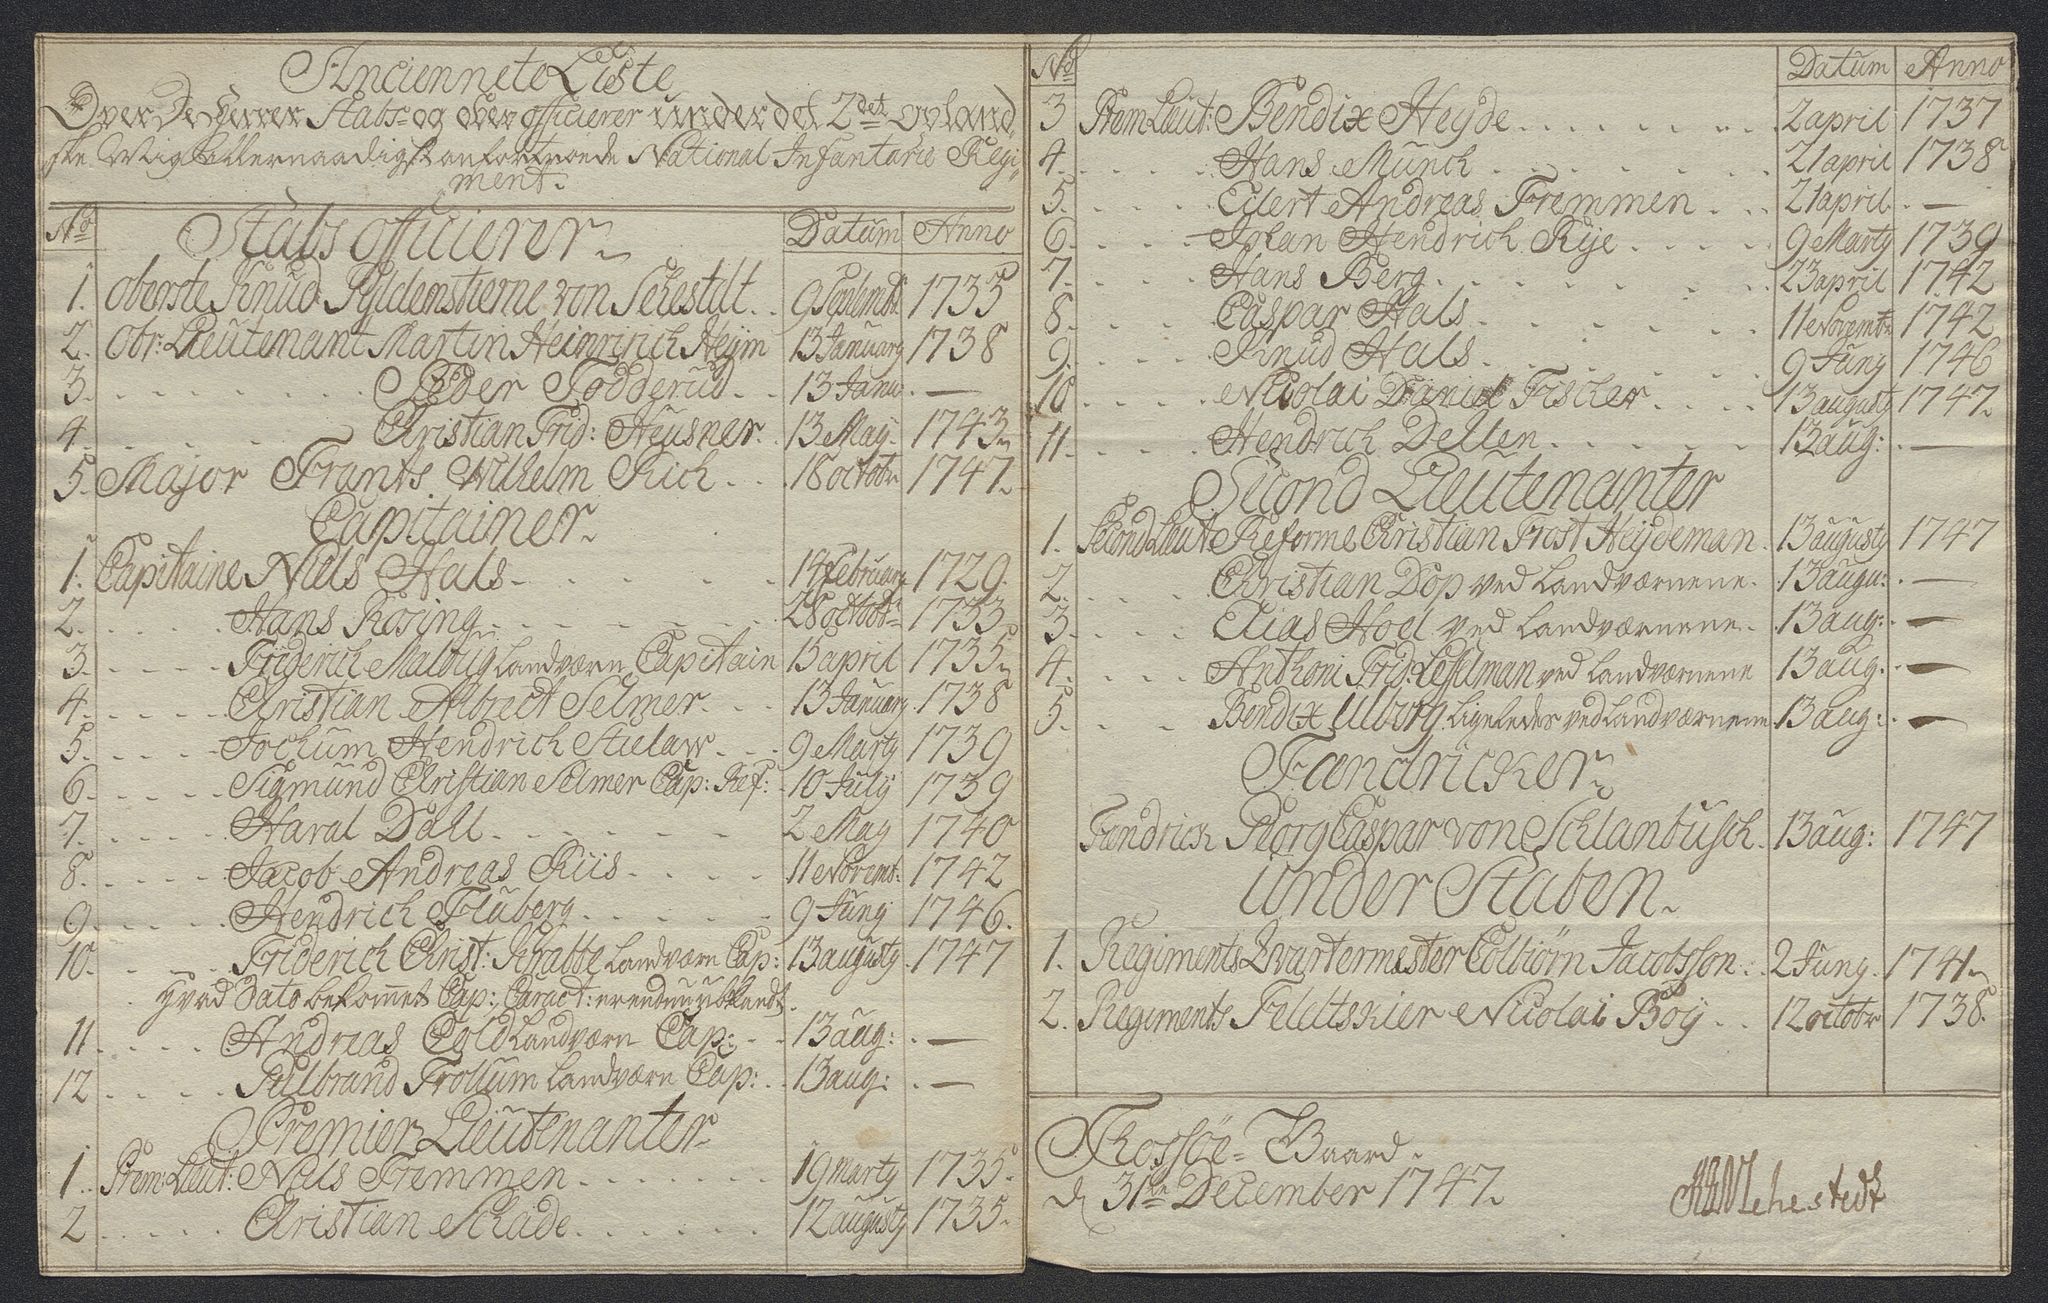 Anciennete Liste
Over De Herrer Stabs- og ober officierer under det 2det opland
ske Mig allernaadigst anfortroede National Infanterie Regi
ment.
No Stabs officierer Datum Anno
1. Oberste Knud Gyldenstierne von Sehestedt. . 9 Septembr 1733
2. Obr: Lieutenant Martin Heinririch Heÿm 13 January 1738
3. Peder Todderud. . 13 Janu. —
4. Christian Frid: Heusner. . 13 Maÿ. 1743
5. Major Frants Wilhelm Rich . . . 18 octobr 1747.
Capitainer.
1. Capitaine Niels Hals 14 February 1729.
2. Hans Rosing 28 octobr 1733
3. Friderich Maltzig Landværn Capitain 15 april 1735
4. Christian Albrect Selmer. . . 13 January 1738
5. Jochum Hendrich Stielaw. . . 9 Marty 1739
6. Sigmund Christian Selmer Cap: Ref: 10 Julÿ 1739
7. Haral Dall 2 May 1740
8. Jacob Andreas Riis 11 Novemb: 1742
9. Hendrich Fluberg 9 Junÿ 1746.
10. Friderich Christ: Krabbe Landværn Cap: 13 augusty 1747
hvad Dato bekommet Cap: Caract: er endnu
11. Andreas Cold Landværn Cap: - - 13 aug: . —
12. Gulbrand Trollum Landværn Cap: . . 13 aug: . —
Premier Lieutenanter
1. Prem: Lieut: Niels Fremmen 19 marty 1735.
2. Christian Schade 12 augusty 1735.
No Datum Anno
3 Prem Lieut: Bendix Heyde 2 april 1737
4. Hans Munch 21 april 1738
5. Eilert Andreas Fremmen . . 21 april . —
6. Johan Hendrich Rije 9 Marty 1739
7. Hans Berg 23 april 1742
8. Caspar Hals 11 Novemb: 1742
9. Knud Hals 9 Juny 1746
10. Nicolai Daniel Fischer 13 augusty 1747.
11. Hendrich Dellen 13 aug: . —
Second Lieutenanter
1. Second Lieut Reforme Christian Frost Heÿdeman. 13 augusty 1747
2. Christian Dop ved Landværnene. 13 augu: . —
3. Elias Hoel ved Landværnene. 13 aug: . —
4. Anthoni Frid: Leffelman ved Landværnene 13 aug. . —
5. Bendix Ulborg ligeledes ved Landværnene 13 aug: . —
Fændricker
Fændrick Georg Caspar von Schlanbusch. 13 aug: 1747
Under Staben.
1. Regiments Qvartermester Colbiørn Jacobsson . . 2 Juny. 1741.
2. Regiments Feldtskier Nicolai Boÿ . . 12 octobr 1738.
Thossøe- Gaard.
d 31te December 1747.
Sehestedt